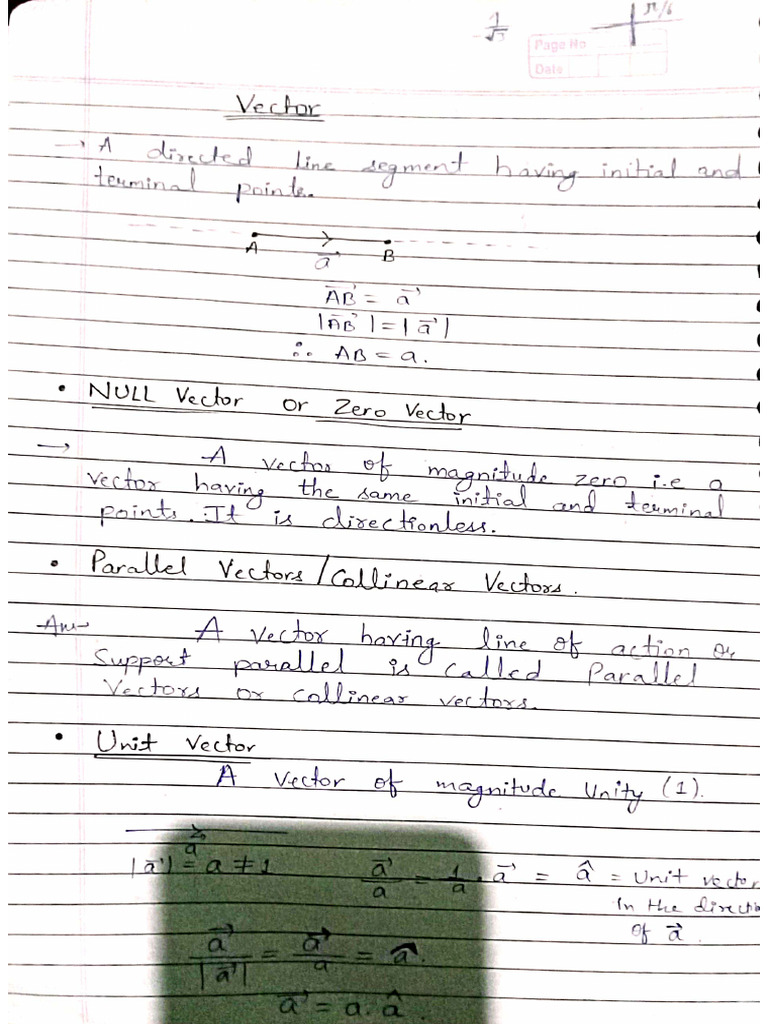 1/√3
π/6
Page No
Date
Vector
→ A directed line segment having initial and
terminal points.
A B
a⃗
A⃗B = a⃗
|A⃗B| = |a⃗|
∴ AB = a.
• NULL Vector or Zero Vector
→ A vector of magnitude zero i.e a
vector having the same initial and terminal
points. It is directionless.
• Parallel Vectors / Collinear Vectors.
Ans- A vector having line of action or
Support parallel is called Parallel
Vectors or collinear vectors.
• Unit Vector
A Vector of magnitude Unity (1).
a⃗
|a⃗| = a ≠ 1 a⃗/a = 1/a . a⃗ = â = Unit vector
In the direction
of a⃗.
a⃗/|a⃗| = a⃗/a = â.
a⃗ = a. â.